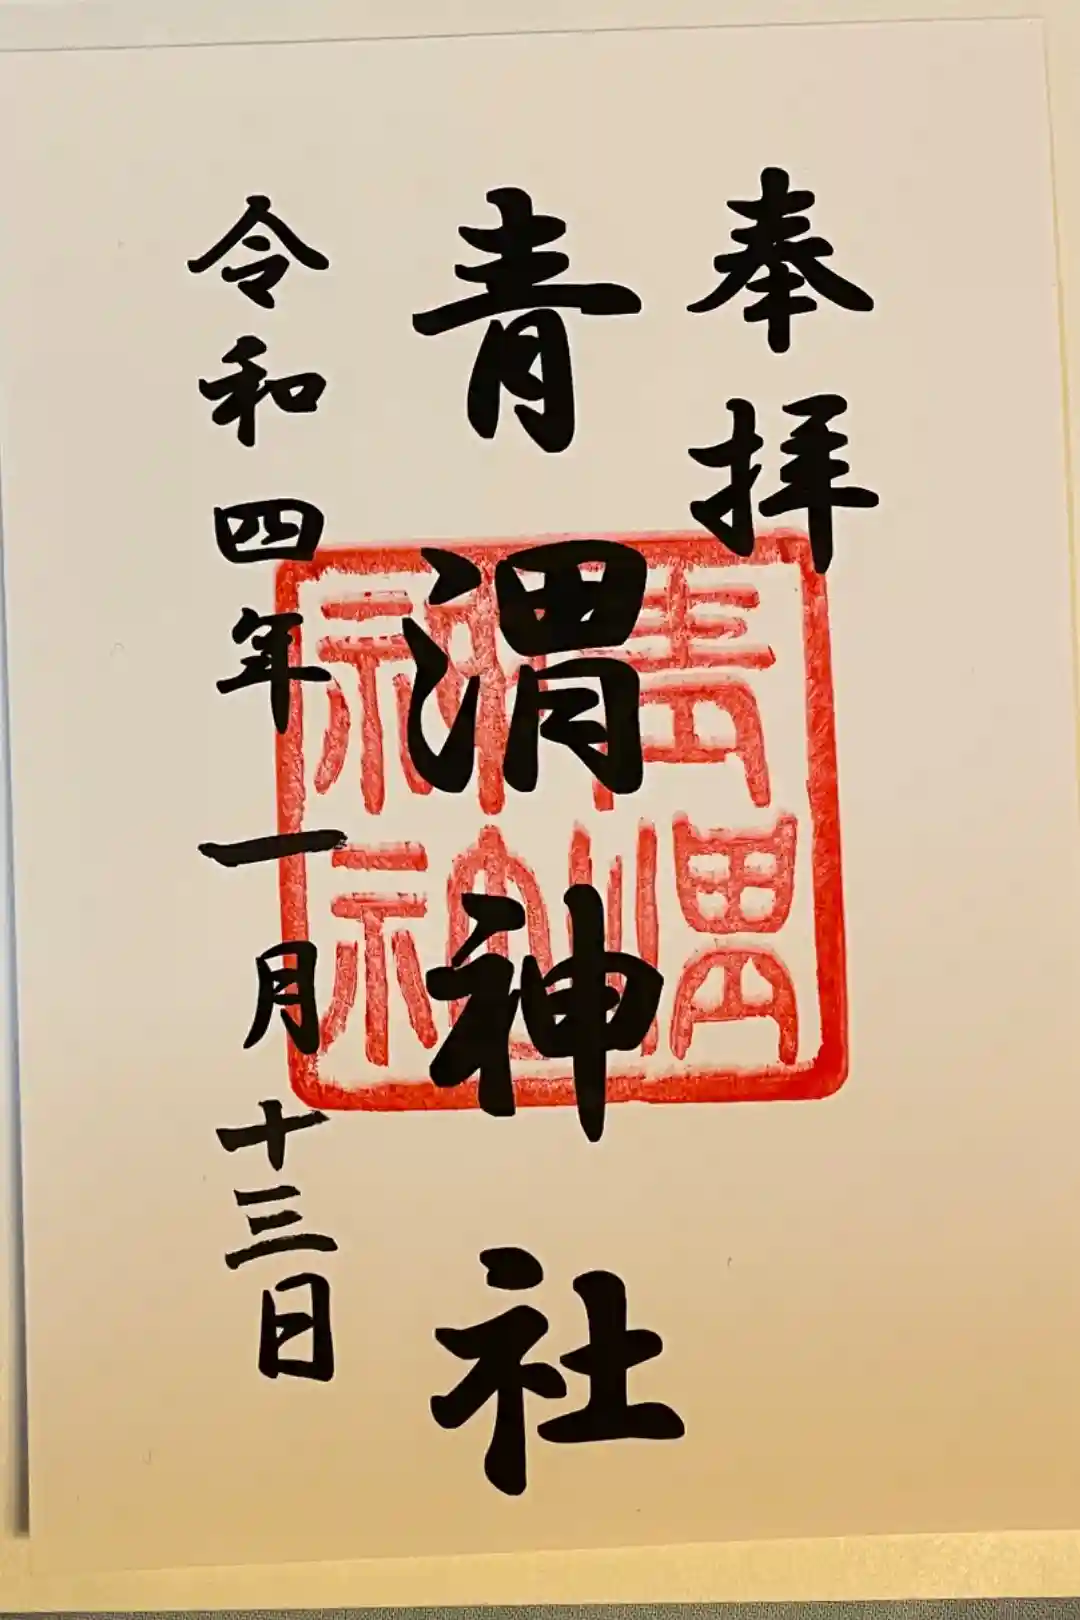 奉拝
青渭神社
令和四年一月十三日
青渭
神社